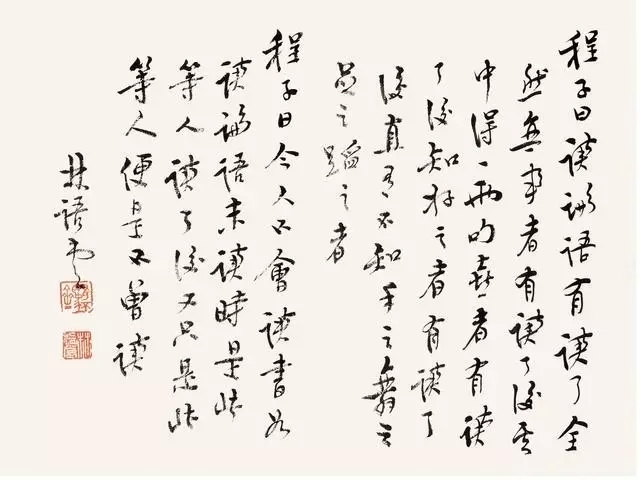 程子曰讀論語有讀了全
然無事者有讀了後其
中得一兩句喜者有讀
了後知好之者有讀了
後直有不知手之舞之
足之蹈之者
程子曰今人不會讀書如
讀論語未讀時是此
等人讀了後又只是此
等人便是不曾讀
林語堂